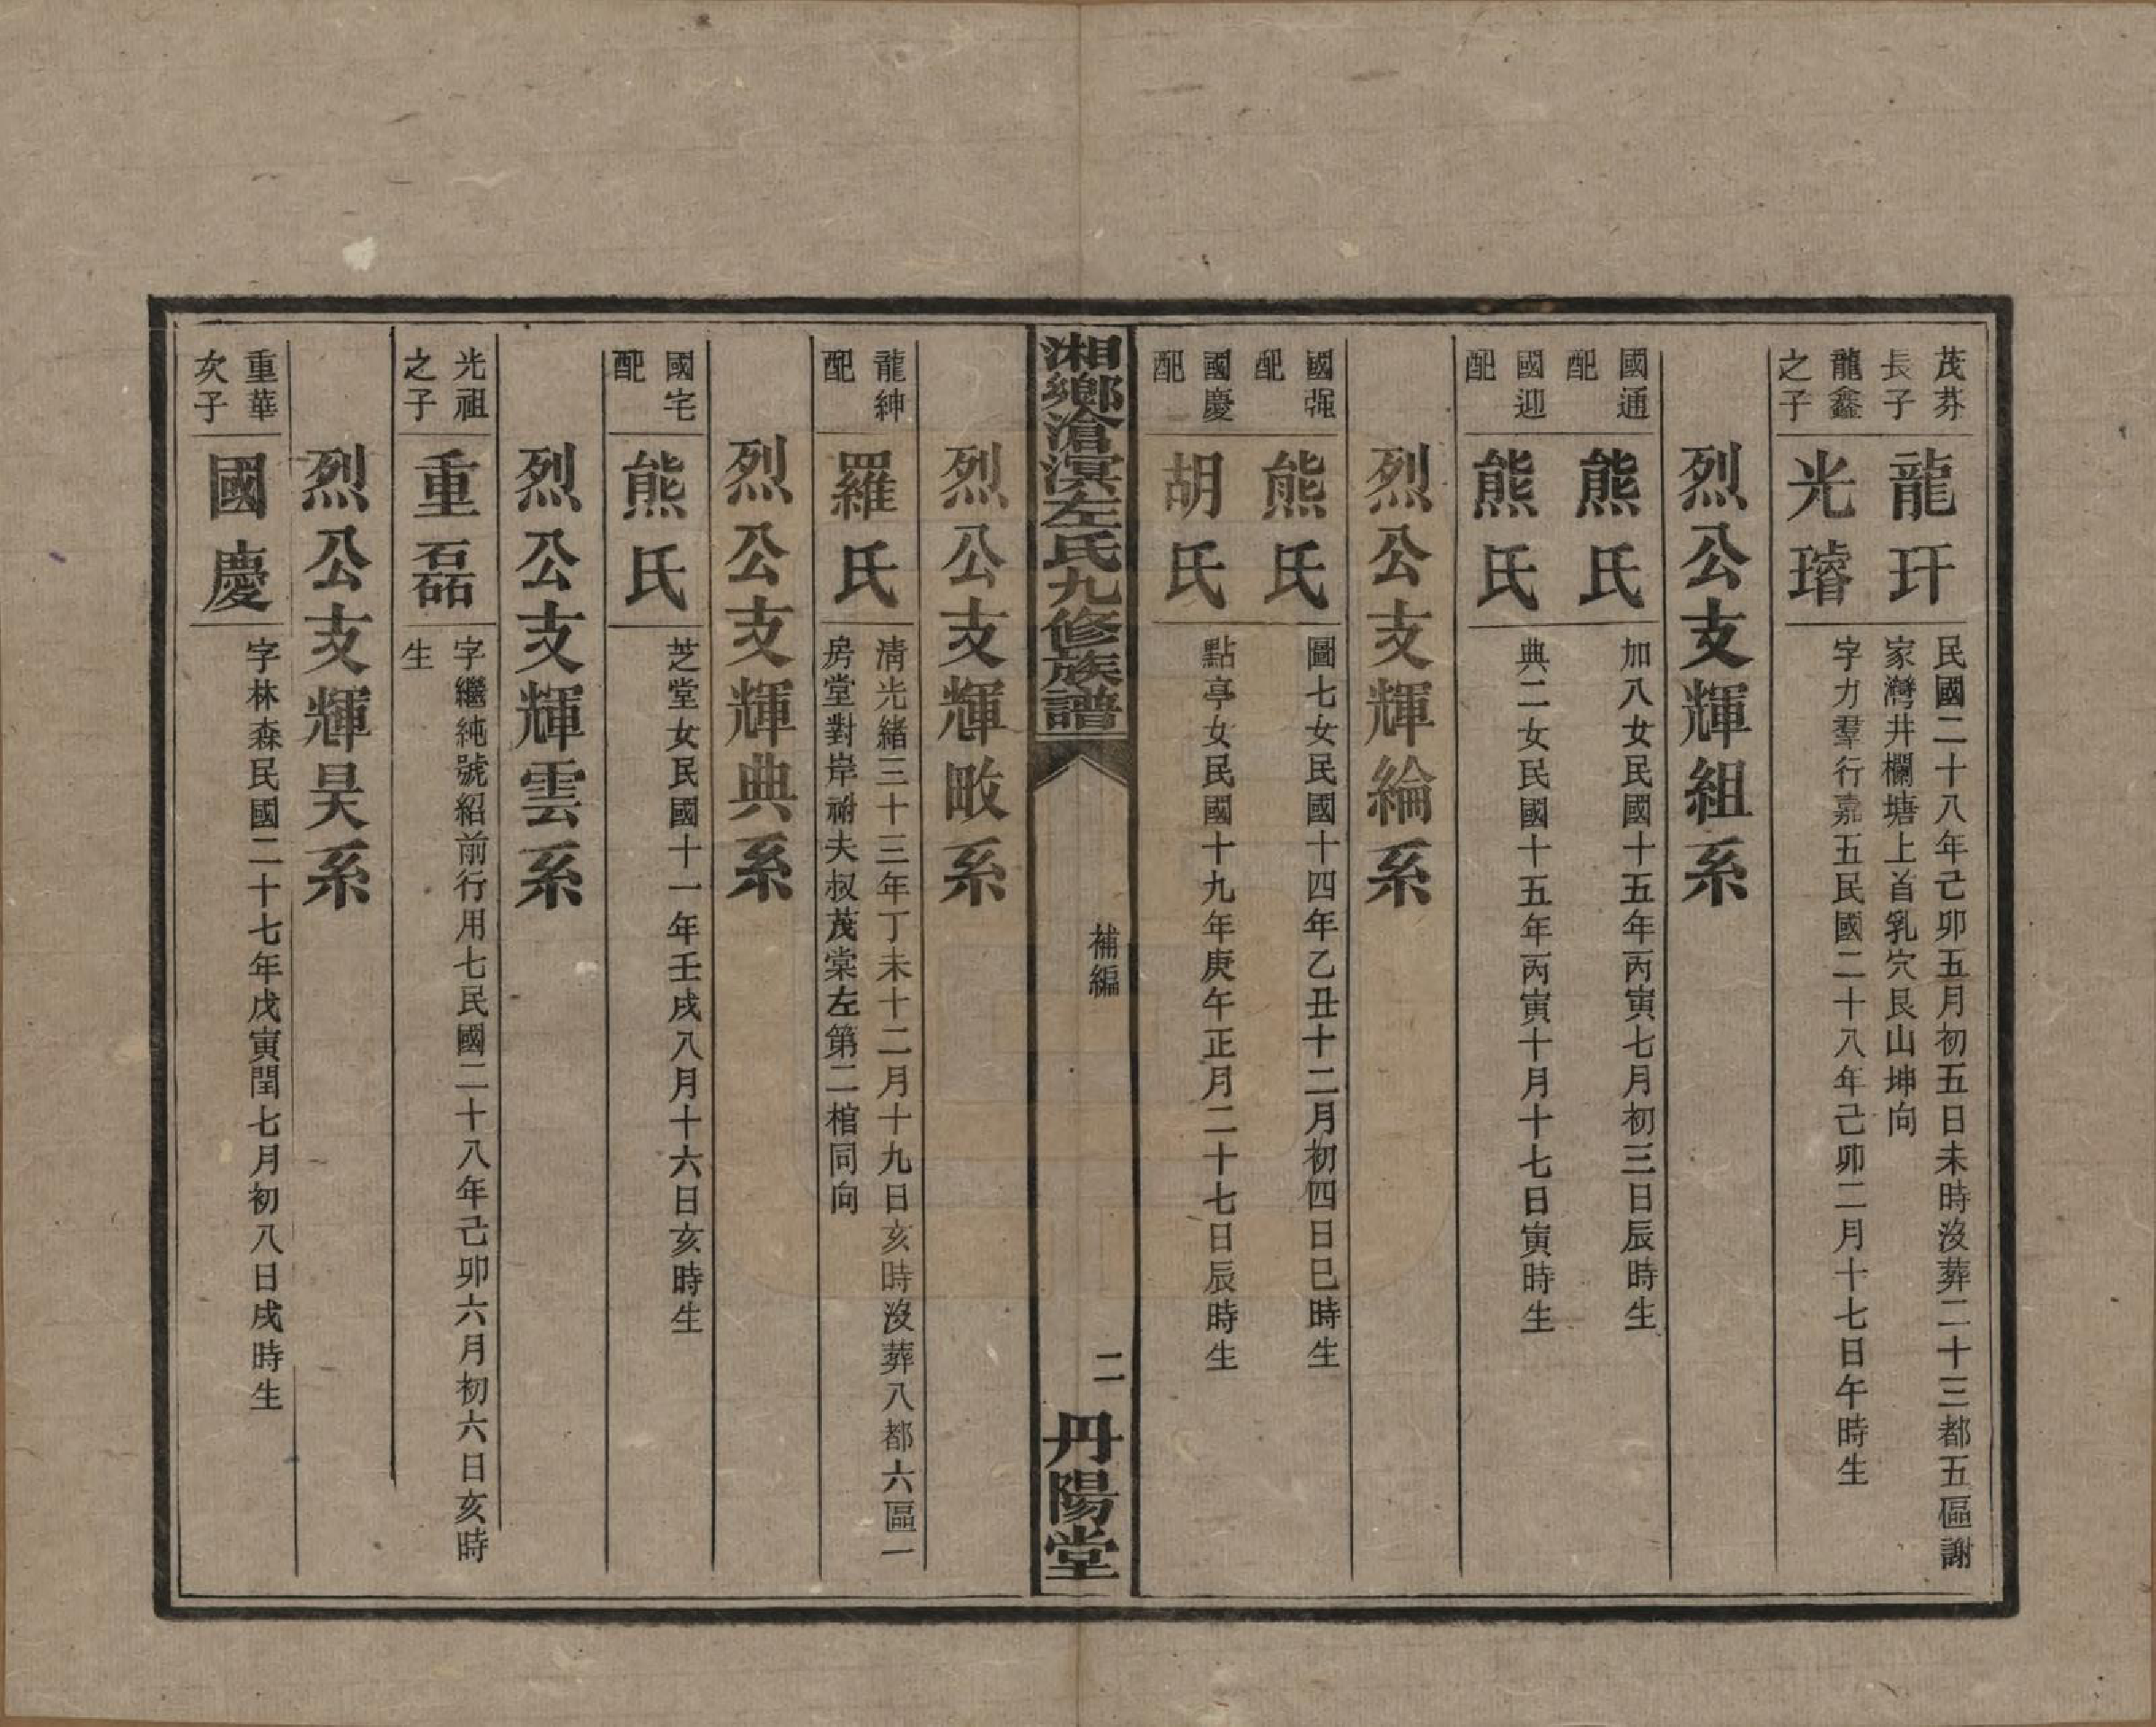 茂芬
長子
龍玕
民國二十八年己卯五月初五日未時沒葬二十三都五區謝
家灣井欄塘上首乳穴艮山坤向
龍鑫
之子
光璿
字力羣行嘉五民國二十八年己卯二月十七日午時生
烈公支輝組系
國通
配
熊氏
加八女民國十五年丙寅七月初三日辰時生
國迎
配
熊氏
典二女民國十五年丙寅十月十七日寅時生
烈公支輝綸系
國强
配
熊氏
圖七女民國十四年乙丑十二月初四日巳時生
國慶
配
胡氏
點亭女民國十九年庚午正月二十七日辰時生
湘鄉滄溟左氏九修族譜
補編
二
丹陽堂
烈公支輝畋系
龍紳
配
羅氏
清光緒三十三年丁未十二月十九日亥時沒葬八都六區一
房堂對岸祔夫叔茂棠左第二棺同向
烈公支輝典系
國宅
配
熊氏
芝堂女民國十一年壬戌八月十六日亥時生
烈公支輝雲系
光祖
之子
重磊
字繼純號紹前行用七民國二十八年己卯六月初六日亥時
生
烈公支輝昊系
重華
次子
國慶
字林森民國二十七年戊寅閏七月初八日戌時生